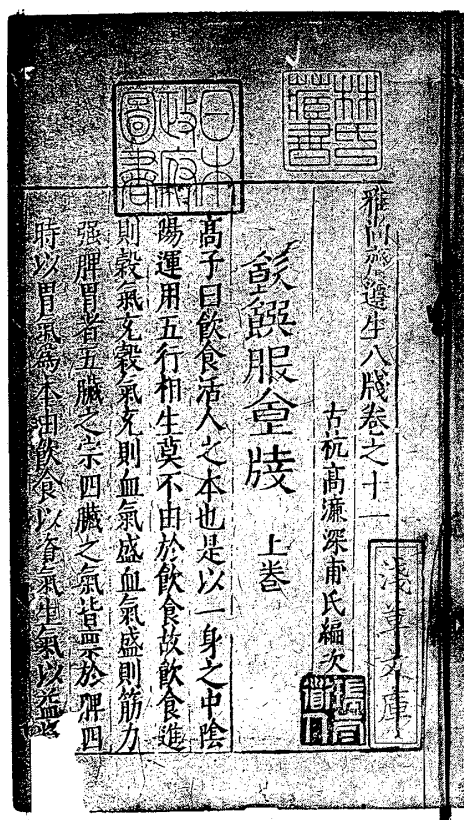 雅尚齋遵生八牋卷之十一
古杭高濂深甫氏編次
飲饌服食牋 上卷
高子曰飲食活人之本也是以一身之中陰
陽運用五行相生莫不由於飲食故飲食進
則穀氣充穀氣充則血氣盛血氣盛則筋力
强脾胃者五臟之宗四臟之氣皆稟於脾四
時以胃氣為本由飲食以資氣生氣以益
淺草文庫
林氏藏書
日本政府圖書